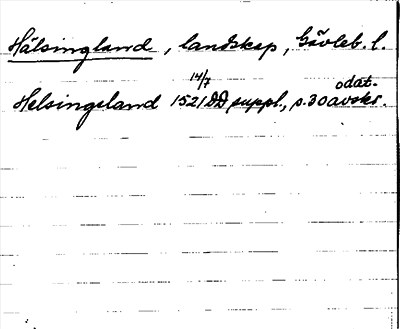 Hälsingland, landskap, Gävleb. l.
14/7 odat.
Helsingeland 1521 DD suppl., s. 30 avskr.